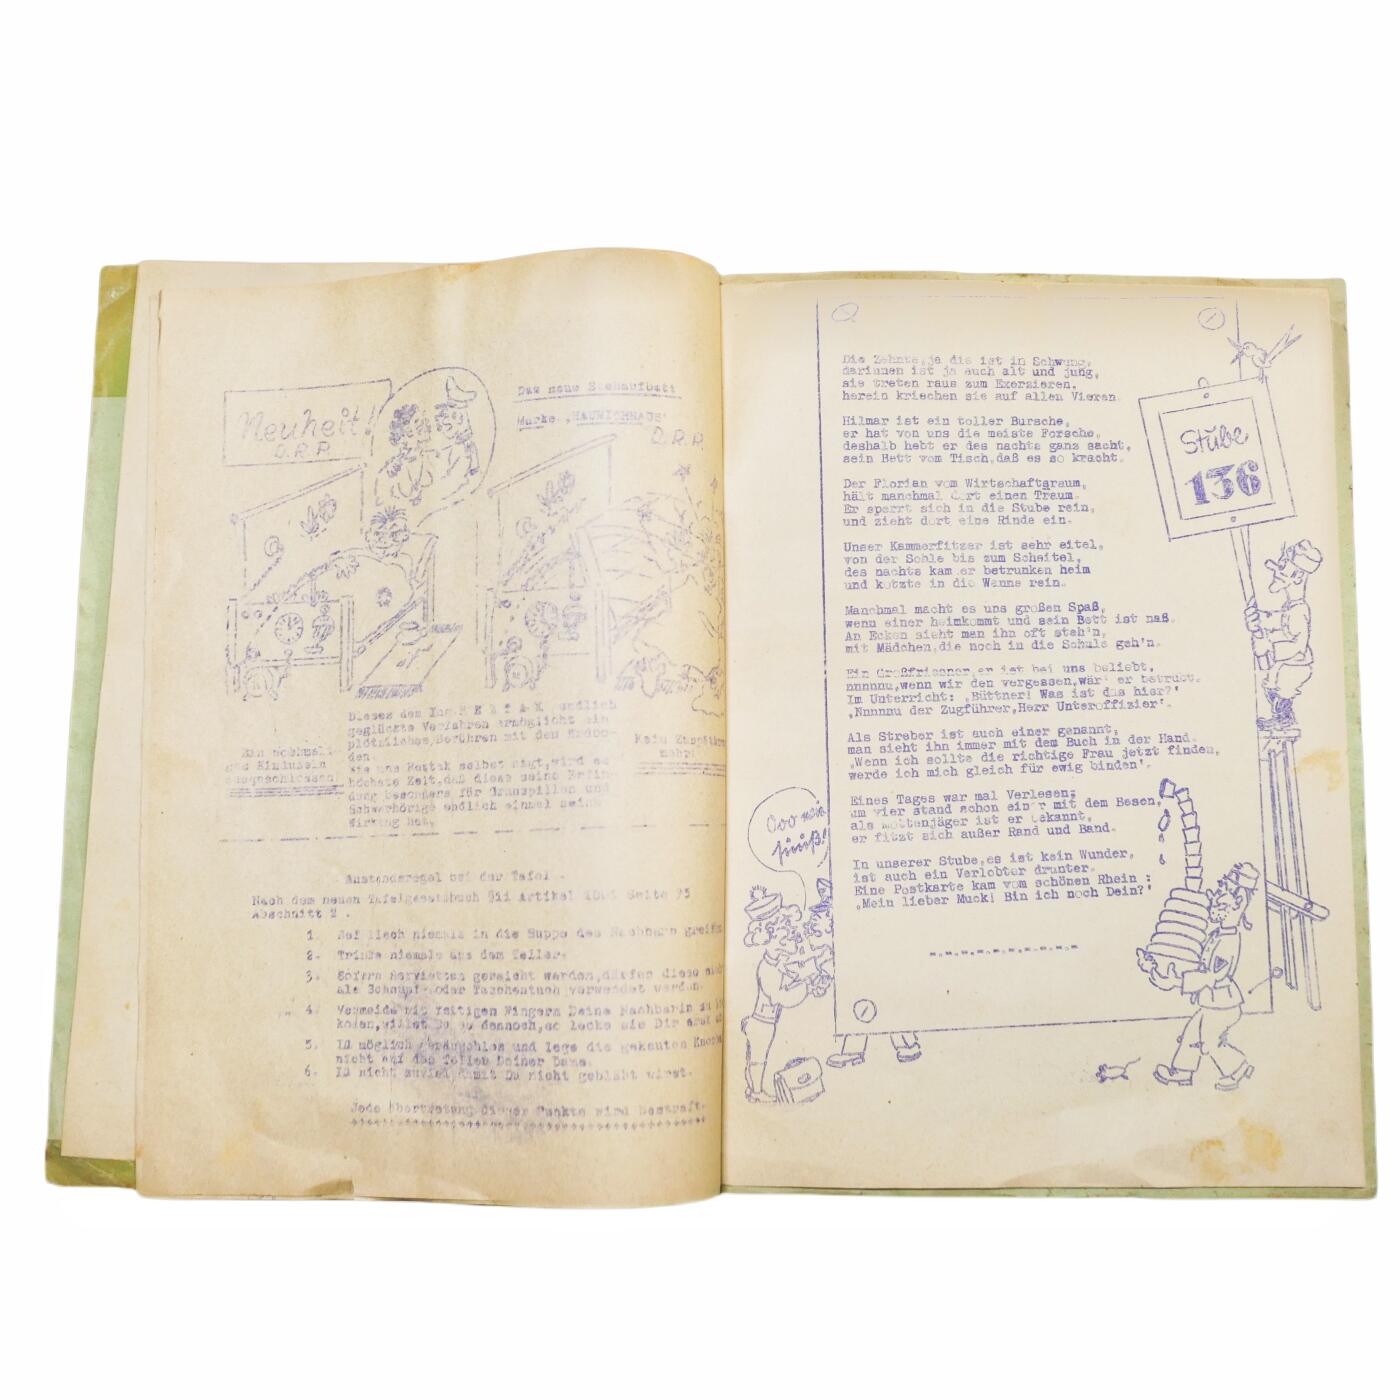 Neuheit!
D.R.P.
Das neue Stehaufbett
Marke ‚HAUMICHRAUS'
D.R.P.
Dieses dem Ing.
geglückte Verfahren ermöglicht ein
plötzliches Berühren mit dem Erdbo-
den.
selbst sagt, wird es
höchste Zeit, daß diese seine Erfin-
dung besonders für Transpillen und
Schwerhörige endlich einmal seine
Wirkung hat.
Ein nochmali-
ges Einduseln
ausgeschlossen!
Kein Zuspätkom
mehr!
Anstandsregel bei der Tafel.
Nach dem neuen Tafelgesetzbuch §11 Artikel Seite 75
Abschnitt 2 .
1. niemals in die Suppe des Nachbarn greifen
2. Trinke niemals aus dem Teller.
3. Sofern Servietten gereicht werden, dürfen diese
als Schnupf- oder Taschentuch verwendet werden.
4. Vermeide mit Fingern Deine Nachbarin zu
willst Du es dennoch, so lecke sie Dir erst
5. Iß möglich geräuschlos und lege die gekauten Knochen
nicht auf den Teller Deiner Dame.
6. Iß nicht zuviel damit Du nicht gebläht wirst.
Jede Übertretung dieser Punkte wird bestraft.
Die Zehnte,ja die ist in Schwung,
darinnen ist ja auch alt und jung,
sie treten raus zum Exerzieren,
herein kriechen sie auf allen Vieren.
Hilmar ist ein toller Bursche,
er hat von uns die meiste Forsche,
deshalb hebt er des nachts ganz sacht,
sein Bett vom Tisch,daß es so kracht.
Der Florian vom Wirtschaftsraum,
hält manchmal dort einen Traum.
Er sperrt sich in die Stube rein,
und zieht dort eine Rinde ein.
Unser Kammerfitzer ist sehr eitel,
von der Sohle bis zum Scheitel,
des nachts kam er betrunken heim
und kotzte in die Wanne rein.
Manchmal macht es uns großen Spaß,
wenn einer heimkommt und sein Bett ist naß.
An Ecken sieht man ihn oft steh'n,
mit Mädchen,die noch in die Schule geh'n.
Ein Großfriesner er ist bei uns beliebt,
nnnnnu,wenn wir den vergessen,wär' er betrübt.
Im Unterricht: ‚Büttner! Was ist das hier?'
‚Nnnnnu der Zugführer,Herr Unteroffizier'.
Als Streber ist auch einer genannt,
man sieht ihn immer mit dem Buch in der Hand.
‚Wenn ich sollte die richtige Frau jetzt finden,
werde ich mich gleich für ewig binden'.
Eines Tages war mal Verlesen;
um vier stand schon einer mit dem Besen,
als Mottenjäger ist er bekannt,
er fitzt sich außer Rand und Band.
In unserer Stube,es ist kein Wunder,
ist auch ein Verlobter drunter.
Eine Postkarte kam vom schönen Rhein :
‚Mein lieber Muck! Bin ich noch Dein?'
Stube
136